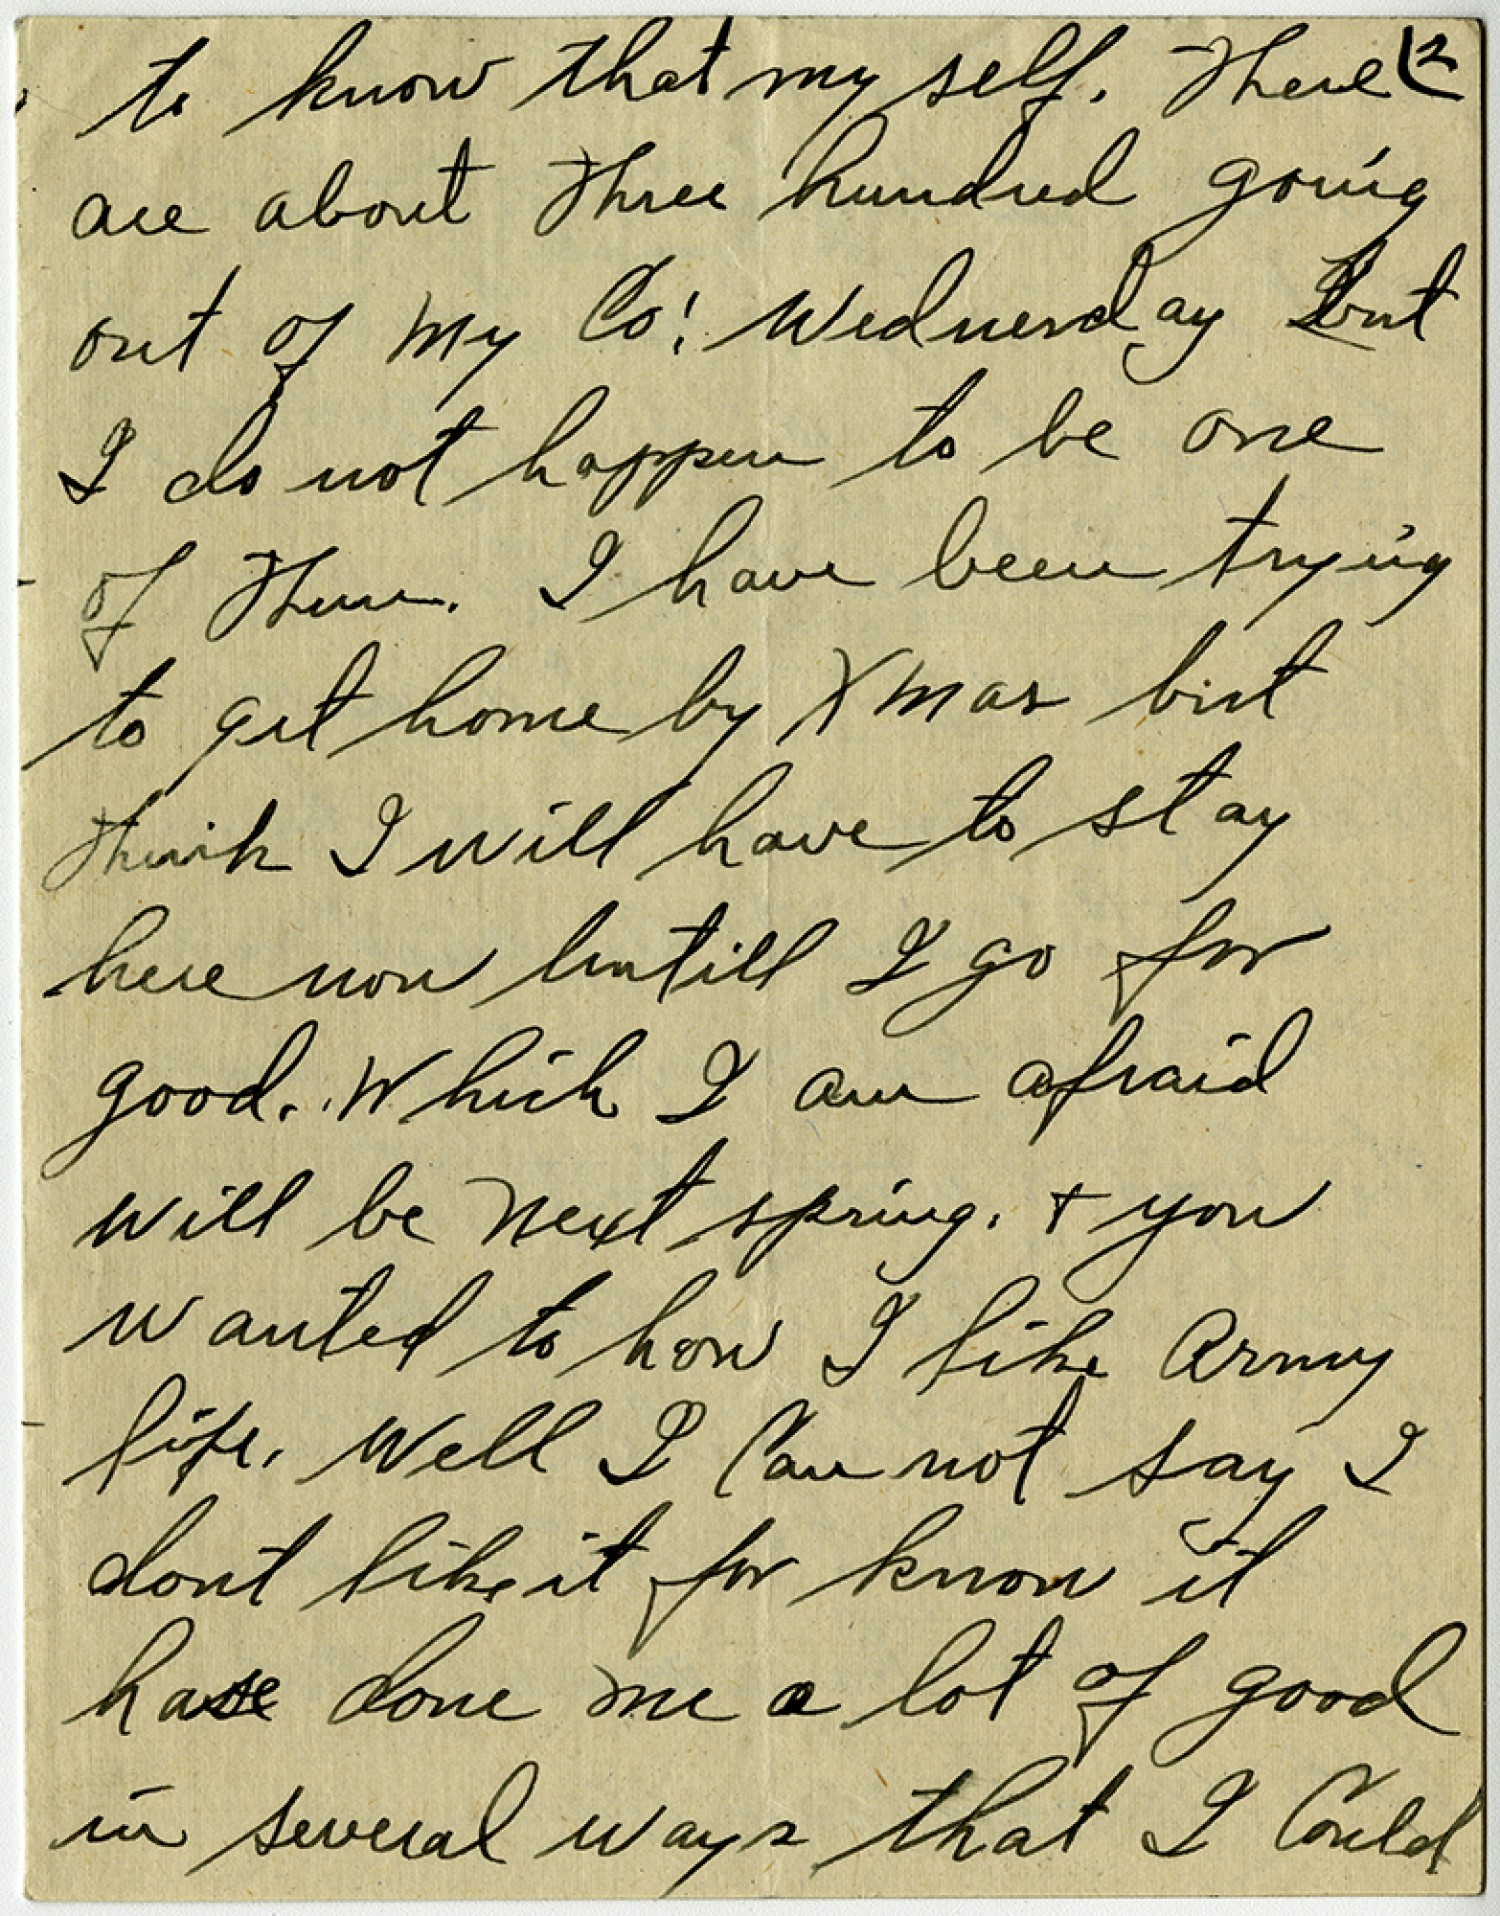 to know that my self. There 2
are about three hundred going
out of my Co! Wednesday but
I do not happen to be one
of them. I have been trying
to get home by Xmas but
think I will have to stay
here now untill I go for
good. Which I am afraid
will be next spring. + you
wanted to how I like Army
life. Well I Can not say I
dont like it for know it
has done me a lot of good
in several ways that I Could